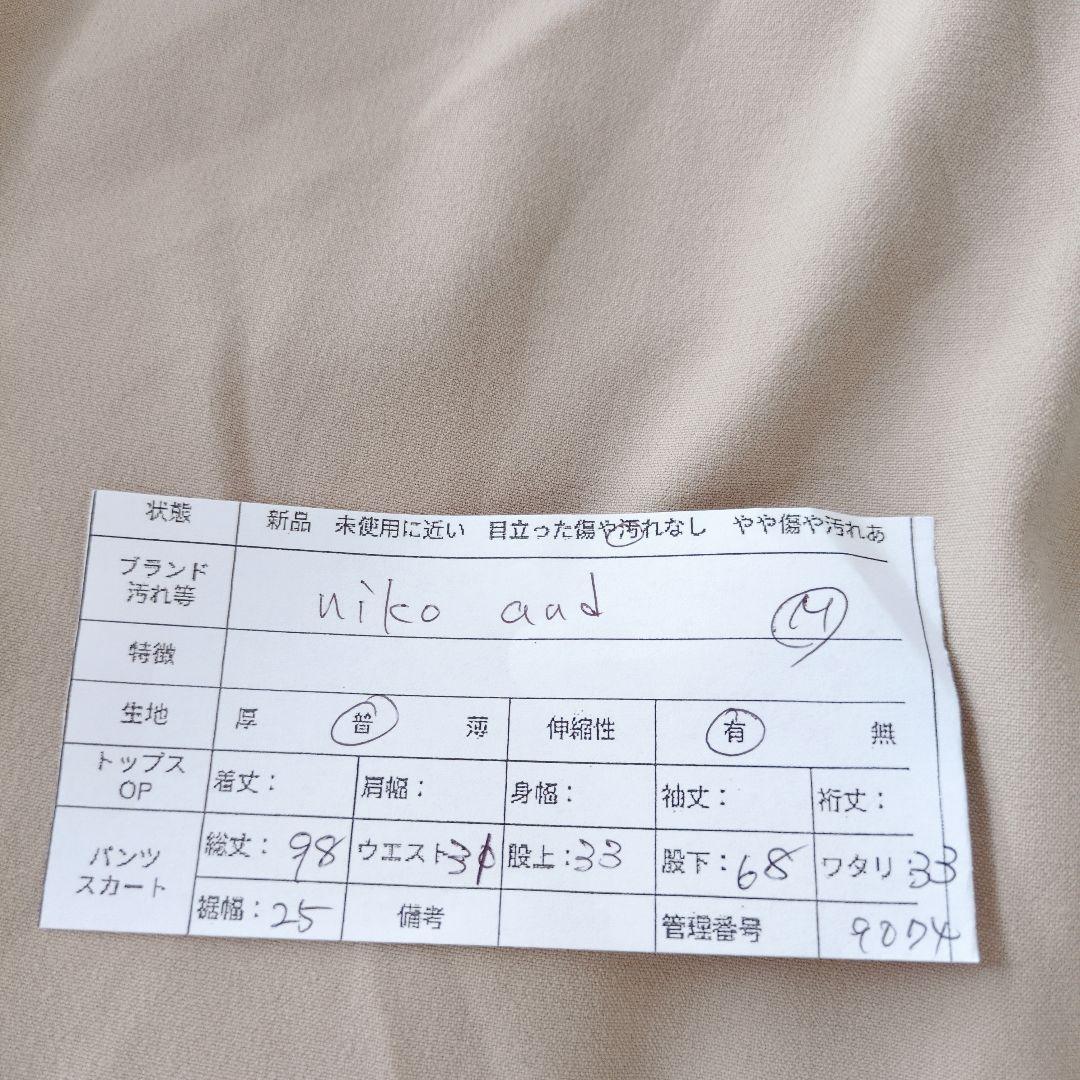 状態 新品 未使用に近い 目立った傷や汚れなし やや傷や汚れあ
ブランド
汚れ等 niko and M
特徴
生地 厚 普 薄 伸縮性 有 無
トップス
OP 着丈: 肩幅: 身幅: 袖丈: 裄丈:
パンツ
スカート 総丈:98 ウエスト 股上:33 股下:68 ワタリ:33
裾幅:25 備考 管理番号 9074